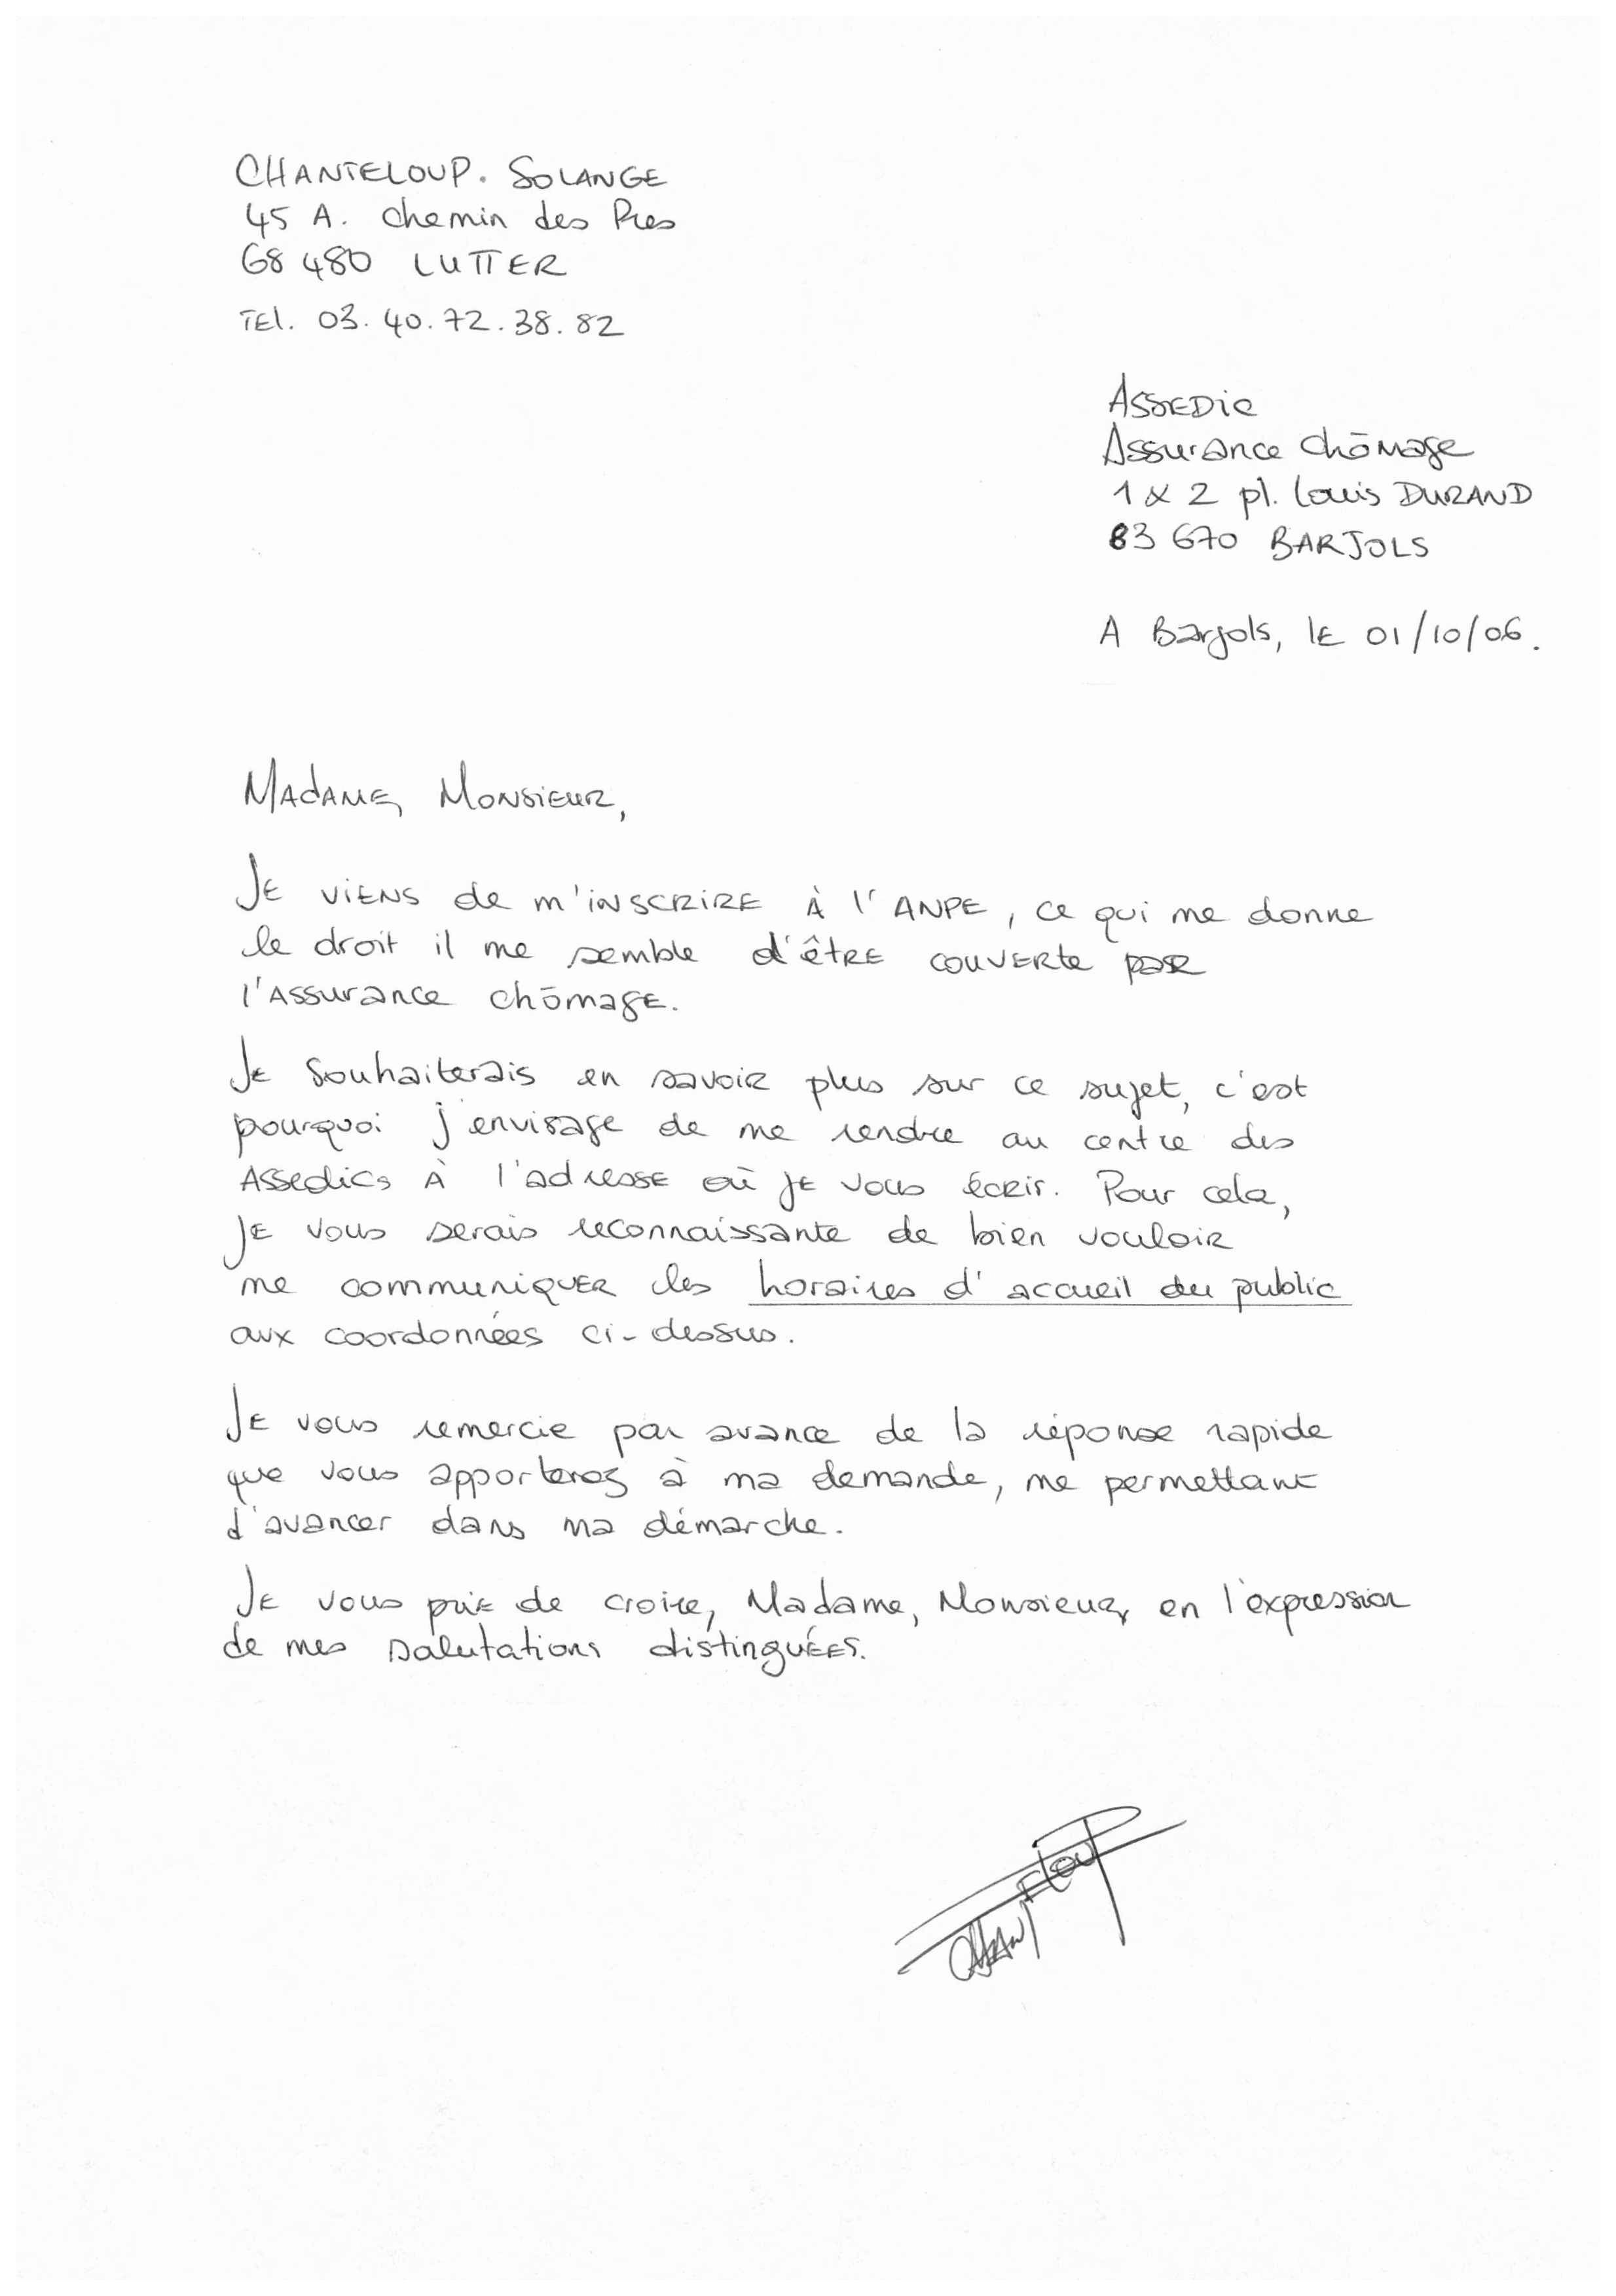 CHANTELOUP. SOLANGE
45 A. chemin des Pres
68 480 LUTTER
TEl. 03. 40. 72. 38. 82
ASSEDic
Assurance Chômage
1 & 2 pl. Louis DURAND
83 670 BARJOLS
A Barjols, lE 01/10/06.
MAdAME, MONSiEUR,
JE ViENS de m'iNSCRiRE À l'ANPE, ce qui me donne
le droit il me semble d'êtRE COUVERte paR
l'Assurance chômagE.
JE Souhaiterais en savoiR plus sur ce sujet, c'est
pourquoi j'envisage de me rendre au centre des
Assedics À l'adressE où jE vous écRir. Pour cela,
JE vous serais reconnaissante de bien vouloiR
me communiqUER les horaires d'accueil du public
aux coordonnées ci-dessus.
JE vous remercie par avance de la réponse rapide
que vous apporterez à ma demande, me permettant
d'avancer dans ma démarche.
JE vous priE de croire, Madame, Monsieur, en l'expression
de mes salutations distinguÉES.
CHANTEloUP